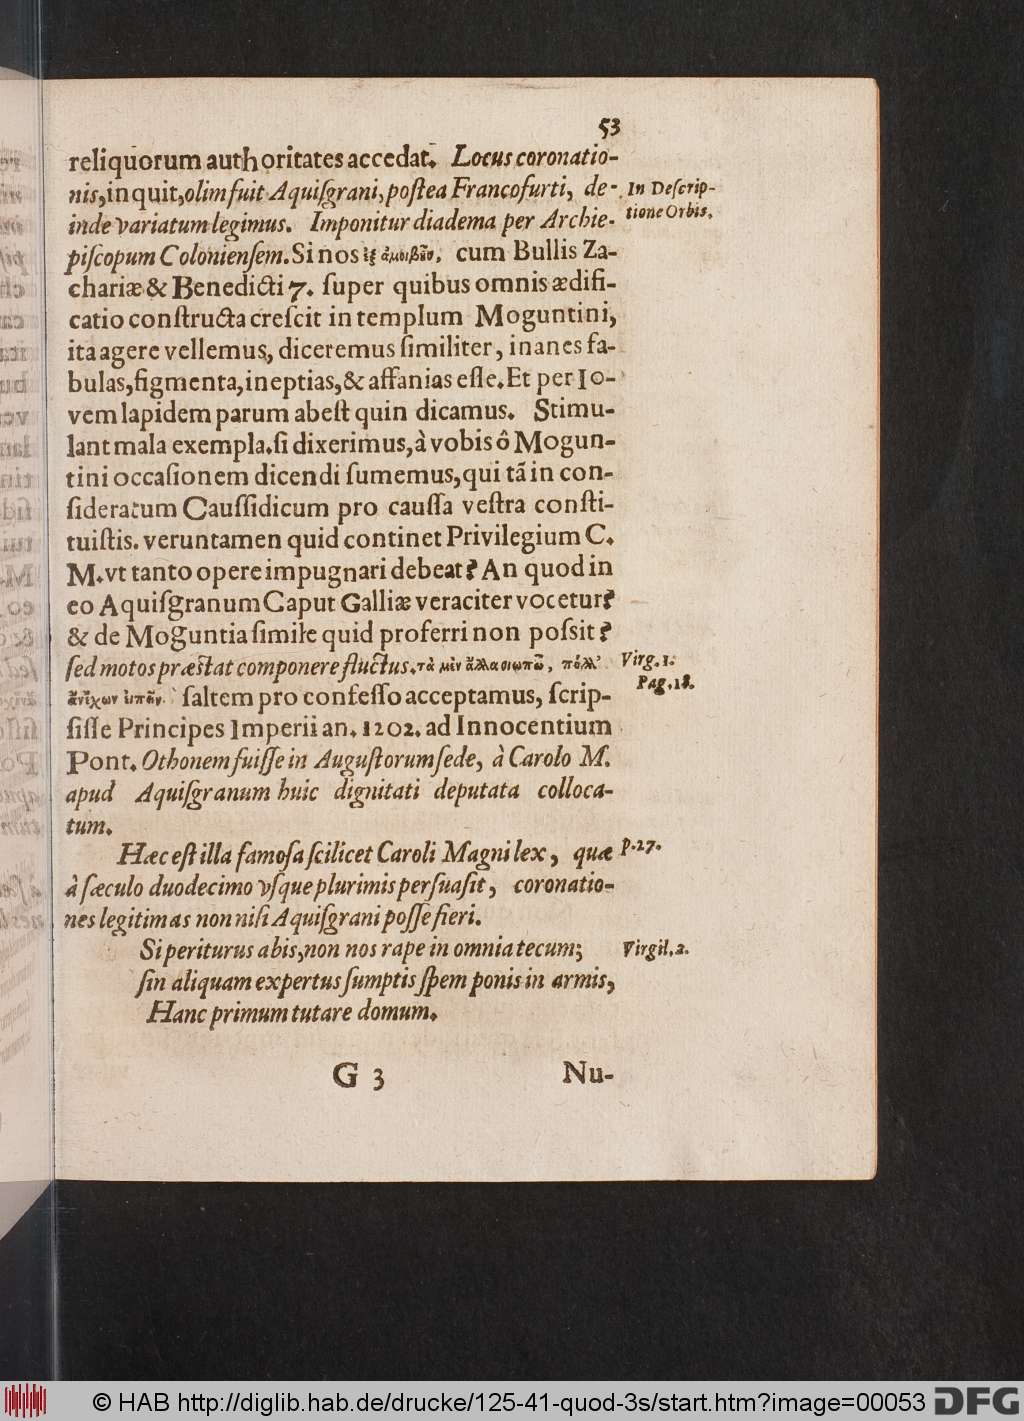 53
reliquorum authoritates accedat. Locus coronatio-
nis, inquit, olim fuit Aquiſgrani, poſtea Francofurti, de-
In Deſcrip-
inde variatum legimus. Imponitur diadema per Archie-
tione Orbis.
piſcopum Colonienſem. Si nos ἐξ ἀμοιβῶν, cum Bullis Za-
chariæ & Benedicti 7. ſuper quibus omnis ædifi-
catio conſtructa creſcit in templum Moguntini,
ita agere vellemus, diceremus ſimiliter, inanes fa-
bulas, figmenta, ineptias, & affanias eſſe. Et per Io-
vem lapidem parum abeſt quin dicamus. Stimu-
lant mala exempla. ſi dixerimus, à vobis ô Mogun-
tini occaſionem dicendi ſumemus, qui tã in con-
ſideratum Cauſſidicum pro cauſſa veſtra conſti-
tuiſtis. veruntamen quid continet Privilegium C.
M. vt tanto opere impugnari debeat? An quod in
eo Aquiſgranum Caput Galliæ veraciter vocetur?
& de Moguntia ſimile quid proferri non poſsit?
ſed motos præſtat componere fluctus. τὰ μὲν ἄλλα σιωπῶ, πόλλ'
Virg. 1.
Pag. 18.
ſaltem pro confeſſo acceptamus, ſcrip-
ſiſſe Principes Imperii an. 1202. ad Innocentium
Pont. Othonem fuiſſe in Auguſtorum ſede, à Carolo M.
apud Aquiſgranum huic dignitati deputata colloca-
tum.
Hæc eſt illa famoſa ſcilicet Caroli Magni lex, quæ
p. 27.
à ſæculo duodecimo vſque plurimis perſuaſit, coronatio-
nes legitimas non niſi Aquiſgrani poſſe fieri.
Si periturus abis, non nos rape in omnia tecum;
Virgil. 2.
ſin aliquam expertus ſumptis ſpem ponis in armis,
Hanc primum tutare domum.
G 3
Nu-
© HAB http://diglib.hab.de/drucke/125-41-quod-3s/start.htm?image=00053
DFG